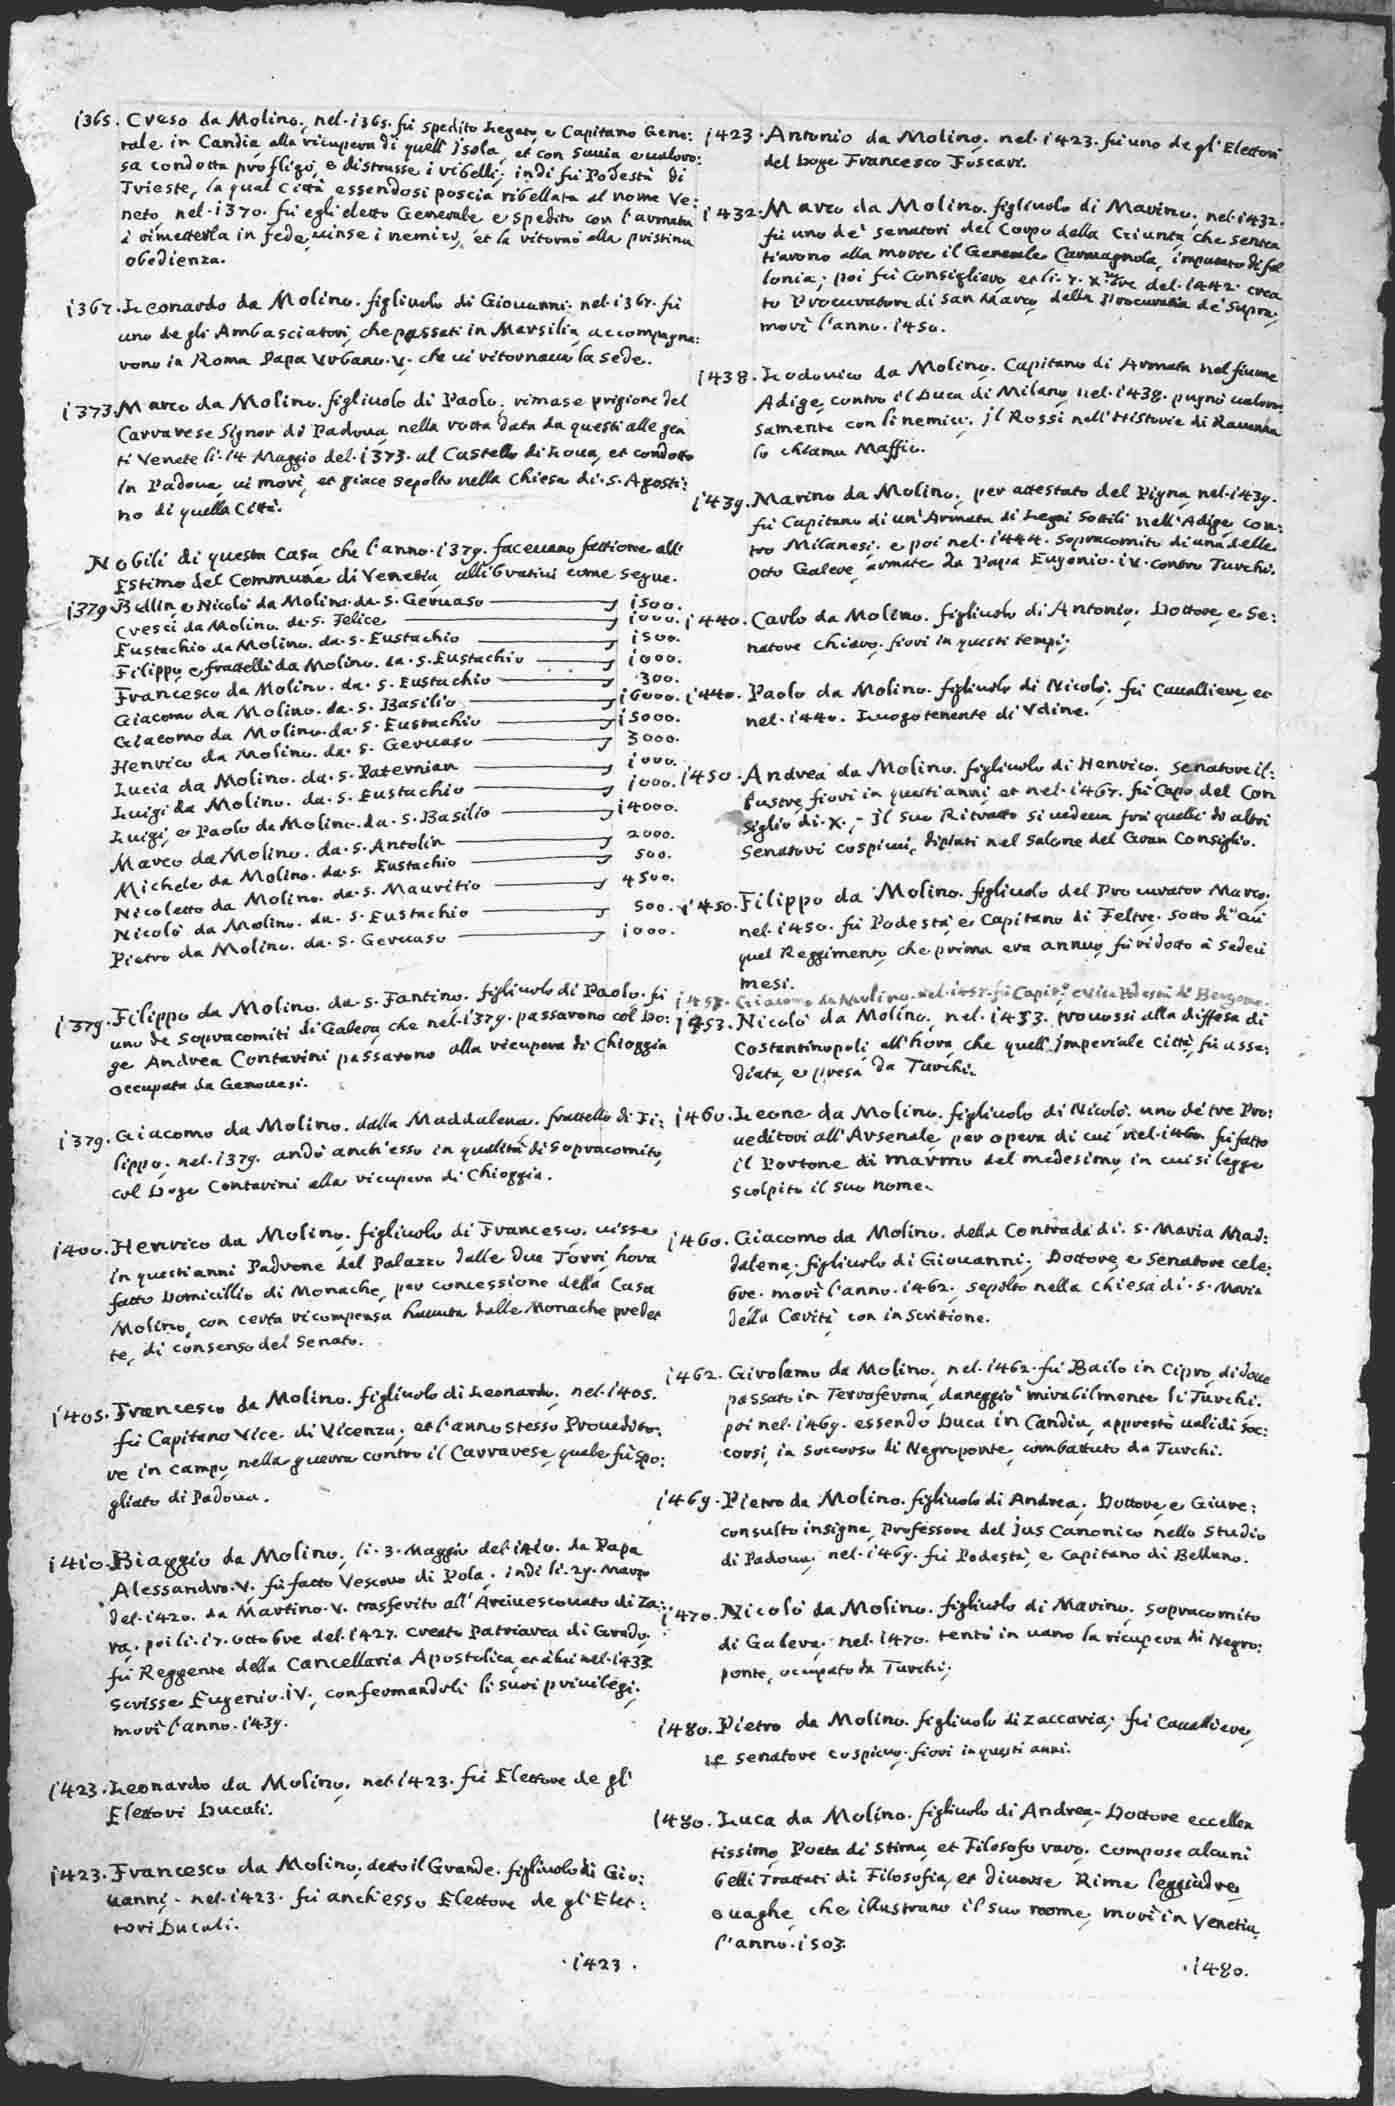 1365. Creso da Molino, nel. 1365. fù spedito Legato, e Capitano Gene:
rale in Candia alla ricupera di quell'Isola, et con savia, e valoro:
sa condotta profligò, e distrusse i ribelli; indi fù Podestà di
Trieste, la qual Città essendosi poscia ribellata al nome Ve:
neto, nel. 1370. fù egli eletto Generale e spedito con l'armata
à rimetterla in fede, vinse i nemici, et la ritornò alla pristina
obedienza.
1367. Leonardo da Molino. figliuolo di Giovanni. nel. 1367. fù
uno de gli Ambasciatori, che passati in Marsilia, accompagna:
rono in Roma Papa Urbano. V. che vi ritornava la Sede.
1373. Marco da Molino. figliuolo di Paolo, rimase prigione del
Carrarese Signor di Padova, nella rotta data da questi alle gen
ti Venete li. 14 Maggio del. 1373. al Castello di Lova, et condotto
in Padova, vi morì, et giace sepolto nella Chiesa di. S. Agosti:
no di quella Città.
Nobili di questa Casa che l'anno. 1379. facevano fattione all'
Estimo del Commune di Venetia, allibrativi come segue.
1379. Bellin, e Nicolò da Molino. da. S. Gervaso 1500.
Cresci da Molino. da. S. Felice 1000.
Eustachio da Molino. da. S. Eustachio 1500.
Filippo, e fratelli da Molino. da. S. Eustachio 1000.
Francesco da Molino. da. S. Eustachio 300.
Giacomo da Molino. da. S. Basilio 16000.
Giacomo da Molino. da. S. Eustachio 15000.
Henrico da Molino. da. S. Gervaso 3000.
Lucia da Molino. da. S. Paternian 1000.
Luigi da Molino. da. S. Eustachio 1000.
Luigi, e Paolo da Molino. da. S. Basilio 14000.
Marco da Molino. da. S. Antolin 2000.
Michele da Molino. da. S. Eustachio 500.
Nicoletto da Molino. da. S. Mauritio 4500.
Nicolò da Molino. da. S. Eustachio 500.
Pietro da Molino. da. S. Gervaso 1000.
1379. Filippo da Molino. da. S. Fantino. figliuolo di Paolo. fù
uno de Sopracomiti di Galera, che nel. 1379. passarono col Do:
ge Andrea Contarini passarono alla ricupera di Chioggia
occupata da Genovesi.
1379. Giacomo da Molino. dalla Maddalena. fratello di Fi:
lippo, nel. 1379. andò anch'esso in qualità di Sopracomito,
col Doge Contarini alla ricupera di Chioggia.
1400. Henrico da Molino. figliuolo di Francesco, visse
in questi anni Padrone del Palazzo dalle due Torri, hora
fatto Domicillio di Monache, per concessione della Casa
Molino, con certa ricompensa havuta dalle Monache predet
te, di consenso del Senato.
1405. Francesco da Molino. figliuolo di Leonardo, nel. 1405.
fù Capitano Vice. di Vicenza; et l'anno stesso Provedito:
re in campo, nella guerra contro il Carrarese, quale fù spo:
gliato di Padova.
1410. Biaggio da Molino, li. 3. Maggio del. 1410. da Papa
Alessandro. V. fù fatto Vescovo di Pola; indi li. 29. Marzo
del. 1420. da Martino. V. trasferito all'Arcivescovato di Za:
ra. poi li. 17. Octobre del. 1427. creato Patriarca di Grado,
fù Reggente della Cancellaria Apostolica, et à lui nel. 1433.
scrisse Eugenio. IV., confermandoli li suoi privilegi.
morì l'anno. 1439.
1423. Leonardo da Molino, nel. 1423. fù Elettore de gl'
Elettori Ducali.
1423. Francesco da Molino, detto il Grande. figliuolo di Gio:
vanni. nel. 1423. fù anch'esso Elettore de gl'Elet:
tori Ducali.
. 1423 .
1423. Antonio da Molino. nel. 1423. fù uno de gl'Elettori
del Doge Francesco Foscari.
1432. Marco da Molino. figliuolo di Marino, nel. 1432.
fù uno de' Senatori del Corpo della Giunta, che senten
tiarono alla morte il Generale Carmagnola, imputato di fel
lonia; poi fù Consigliero, et li. 7. Xmbre del. 1442. crea
to Procuratore di San Marco, della Procuratia de' Supra,
morì l'anno. 1450.
1438. Lodovico da Molino. Capitano di Armata nel fiume
Adige, contro il Duca di Milano, nel. 1438. pugnò valoro
samente con li nemici. Il Rossi nell'Historie di Ravenna
lo chiama Maffio.
1439. Marino da Molino, per attestato del Pigna, nel. 1439.
fù Capitano di un'Armata di Legni Sottili nell'Adige, con:
tro Milanesi. e poi nel. 1444. Sopracomito di una delle
Otto Galere, armate da Papa Eugenio. IV. contro Turchi.
1440. Carlo da Molino. figliuolo di Antonio, Dottore, e Se:
natore chiaro. fiorì in questi tempi;
1440. Paolo da Molino. figliuolo di Nicolò, fù Cavalliere, et
nel. 1440. Luogotenente di Udine.
1450. Andrea da Molino. figliuolo di Henrico. Senatore il:
lustre, fiorì in questi anni, et nel. 1467. fù Capo del Con
siglio di. X., - Il suo Ritratto si vedeva frà quelli di altri
Senatori cospicui, dipinti nel Salone del Gran Consiglio.
1450. Filippo da Molino. figliuolo del Procurator Marco.
nel. 1450. fù Podestà, e Capitano di Feltre. sotto di cui
quel Reggimento, che prima era annuo, fù ridotto à sedeci
mesi.
1457. Giacomo da Molino. nel. 1457. fù Capit.º e Vice Podestà di Bergomo.
1453. Nicolò da Molino, nel. 1453. trovossi alla diffesa di
Costantinopoli all'hora, che quell'Imperiale Città, fù asse:
diata, e presa da Turchi.
1460. Leone da Molino. figliuolo di Nicolò. uno de tre Pro:
veditori all'Arsenale, per opera di cui nel. 1460. fù fatto
il Portone di marmo del medesimo, in cui si legge
scolpito il suo nome.
1460. Giacomo da Molino. della Contrada di. S. Maria Mad:
dalena. figliuolo di Giovanni. Dottore, e Senatore cele:
bre. morì l'anno. 1462. sepolto nella chiesa di. S. Maria
della Carità con inscritione.
1462. Girolamo da Molino. nel. 1462. fù Bailo in Cipro, di dove
passato in Terraferma, daneggiò mirabilmente li Turchi.
poi nel. 1469. essendo Duca in Candia, apprestò validi Soc:
corsi, in soccorso di Negroponte, combattuto da Turchi.
1469. Pietro da Molino. figliuolo di Andrea, Dottore, e Giure:
consulto insigne, Professore del jus Canonico nello Studio
di Padova. nel. 1469. fù Podestà, e Capitano di Belluno.
1470. Nicolò da Molino. figliuolo di Marino, Sopracomito
di Galera. nel. 1470. tentò in vano la ricupera di Negro:
ponte, occupato da Turchi;
1480. Pietro da Molino. figliuolo di Zaccaria; fù Cavalliere,
et Senatore cospicuo. fiorì in questi anni.
1480. Luca da Molino. figliuolo di Andrea - Dottore eccellen
tissimo, Poeta di Stima, et Filosofo raro, compose alcuni
belli Trattati di Filosofia, et diverse Rime leggiadre,
e vaghe, che illustrano il suo nome, morì in Venetia,
l'anno. 1503.
. 1480.